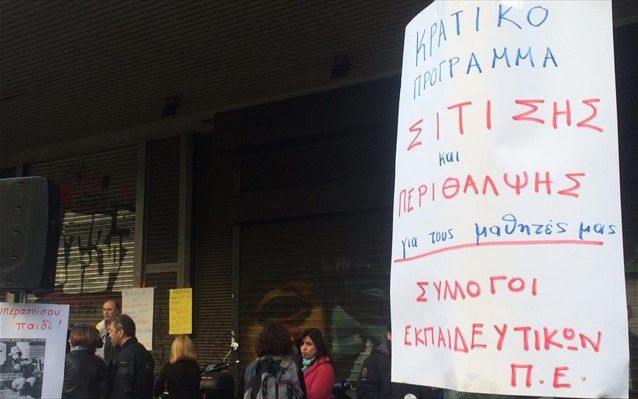 ΚΡΑΤΙΚΟ
ΠΡΟΓΡΑΜΜΑ
ΣΙΤΙΣΗΣ
και
ΠΕΡΙΘΑΛΨΗΣ
για τους μαθητές μας
ΣΥΜΟΓΟΙ
ΕΚΠΑΙΔΕΥΤΙΚΩΝ
Π.Ε.
υπερασπίσου
παιδί!